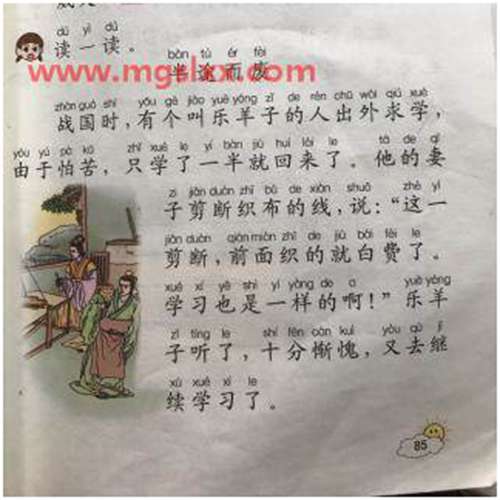 dú yī dú
读一读。
bàn tú ér fèi
半途而废
www.mgslxx.com
zhàn guó shí yǒu gè jiào yuè yáng zǐ de rén chū wài qiú xué
战国时，有个叫乐羊子的人出外求学，
yóu yú pà kǔ zhǐ xué le yí bàn jiù huí lái le tā de qī
由于怕苦，只学了一半就回来了。他的妻
zi jiǎn duàn zhī bù de xiàn shuō zhè yì
子剪断织布的线，说：“这一
jiǎn duàn qián miàn zhī de jiù bái fèi le
剪断，前面织的就白费了。
xué xí yě shì yí yàng de a yuè yáng
学习也是一样的啊！”乐羊
zǐ tīng le shí fēn cán kuì yòu qù jì
子听了，十分惭愧，又去继
xù xué xí le
续学习了。
85